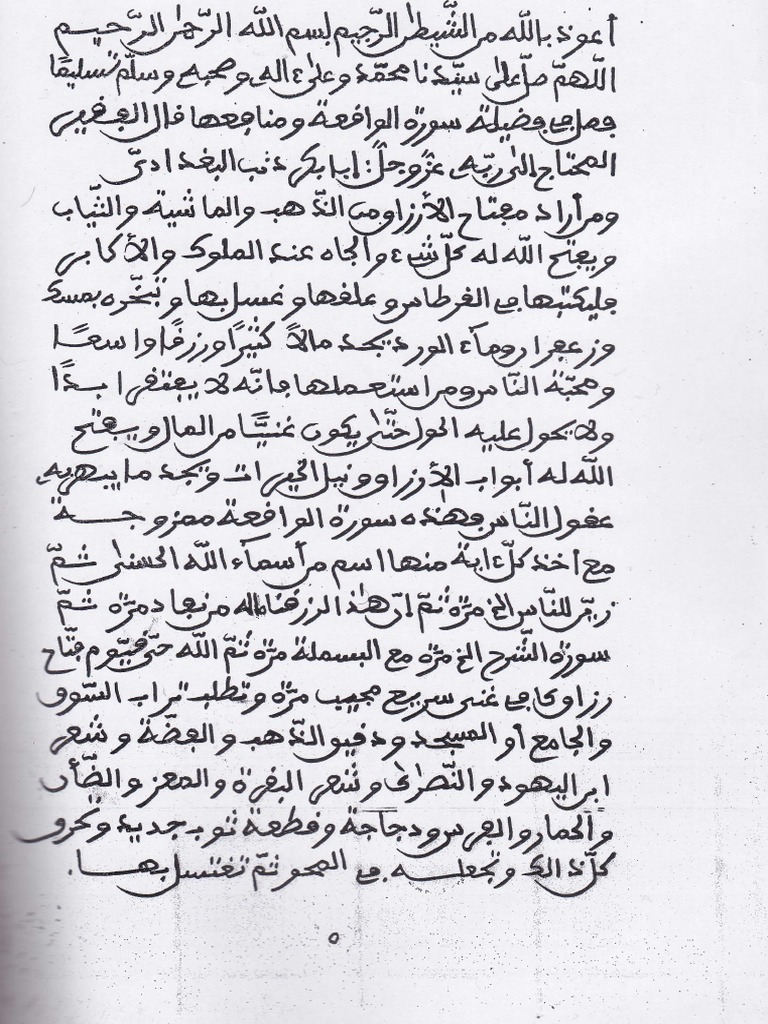 أعوذ بالله من الشيطن الرّجيم بسم الله الرّحمن الرّحيم
اللّهمّ صلّ على سيّدنا محمّد وعلى ءاله وصحبه وسلّم تسليمًا
فصل في فضيلة سورة الوافعة ومنافعها فال الففير
المحتاج إلى ربّه عزّ وجلّ: أبابكر البغدادىّ
ومن أراد مفتاح الأرزاق من الذّهب والماشية والثّياب
ويفتح الله له كلّ شيء والجاه عند الملوك والأكابر
فليكتبها في الفرطاس وعلفها وغسل بها وتبخّره بمسك
وزعفران وماء الورد يجد مالاً كثيرًا ورزفًا واسعًا
ومحبّة النّاس ومن استعملها فانّه لا يفتفر ابدًا
ولا يحول عليه الحول حتّى يكون غنيًّا من المال ويفتح
الله له أبواب الأرزاق ونيل الخيرات ويجد ما يبهر به
عفول النّاس وهذه سورة الوافعة ممزوجة
مع أخذ كلّ ءاية منها اسم من أسماء الله الحسنى ثمّ
زيّن للنّاس الخ مرّة ثمّ إنّ هذا لرزفنا ماله من نفاد مرّة ثمّ
سورة الشّرح الخ مرّة مع البسملة مرّة ثمّ الله حيّ فيّوم فتّاح
رزاق غنى سريع مجيب مرّة وتطلب تراب السّوق
والجامع أو المسجد ودفيق الذّهب والفضّة وشعر
ابن اليهود والنّصراى وشعر البفرة والمعز والضّأن
والحمار والفرس ودجاجة وفطعة ثوب جديد وتحرق
كلّ ذالك وتجعله في المحو ثمّ تغتسل بها.